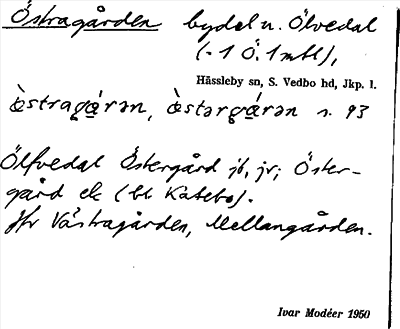 Östragården bydel u. Ölvedal
(-1 Ö. 1 mtl),
Hässleby sn, S. Vedbo hd, Jkp. l.
ö̀stragá̱rən, ö̀stərgá̱rən s. 93
Ölfvedal Östergård jb, jr; Öster-
gård ek (bl Katebo).
Jfr Västragården, Mellangården.
Ivar Modéer 1950